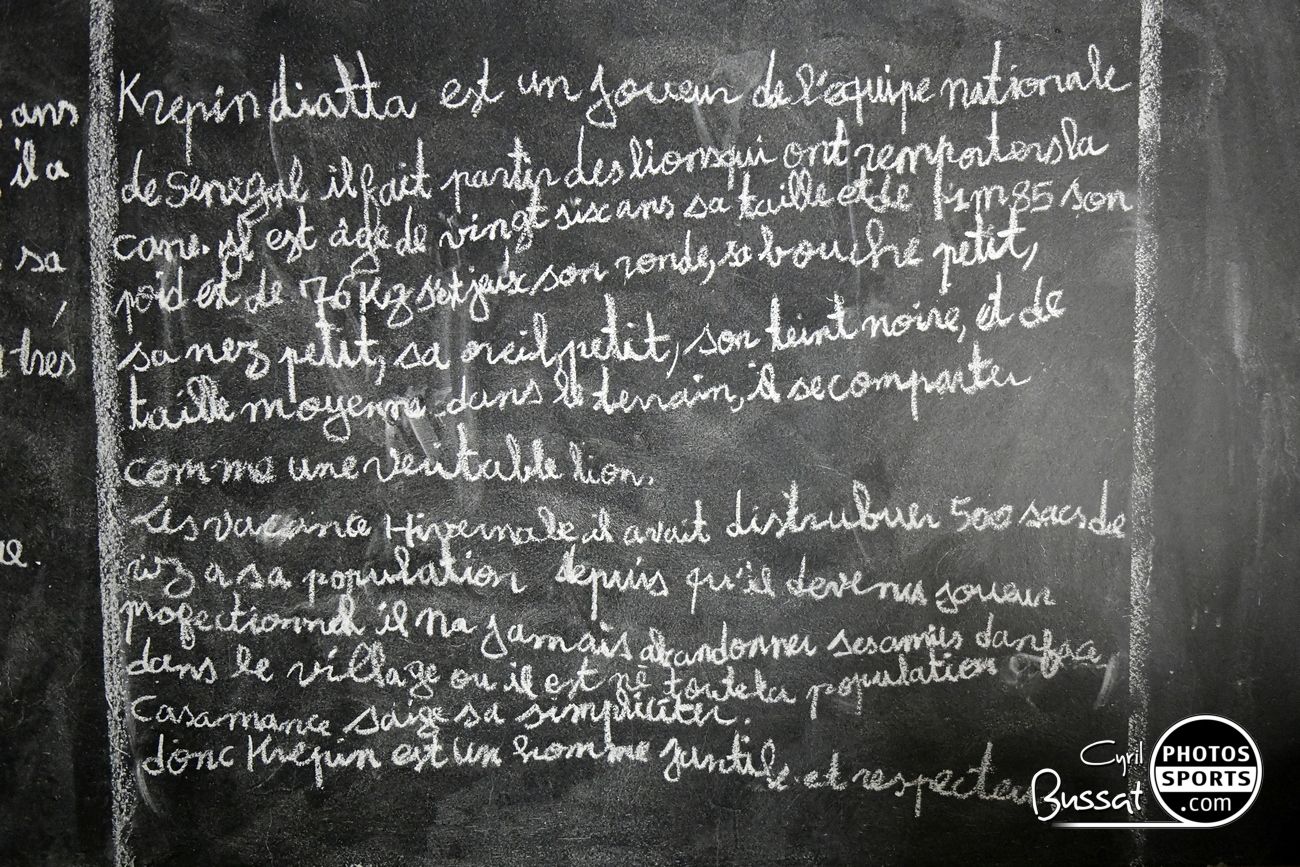 ans
il a
sa
tres
Krepin diatta est un joueur de l'équipe nationale
de senegal il fait partir des lions qui ont remporters la
cane. il est âgé de vingt six ans sa taille et de 1m85 son
poid et de 76 kg set jeux son ronde, sa bouche petit,
sa nez petit, sa oreil petit, son teint noire, et de
taille moyenne dans le terrain, il se comparter
comme une veritable lion.
Les vacante Hivernale il avait distrubuer 500 sacs de
riz a sa population depuis qu'il devenu joueur
profectionnel il na jamais abandonner ses amies
dans le village ou il est né toute la population
Casamance saige sa simpliciter.
donc Krepin est un homme juntile et respecteu
Cyril
Bussat
PHOTOS
SPORTS
.com